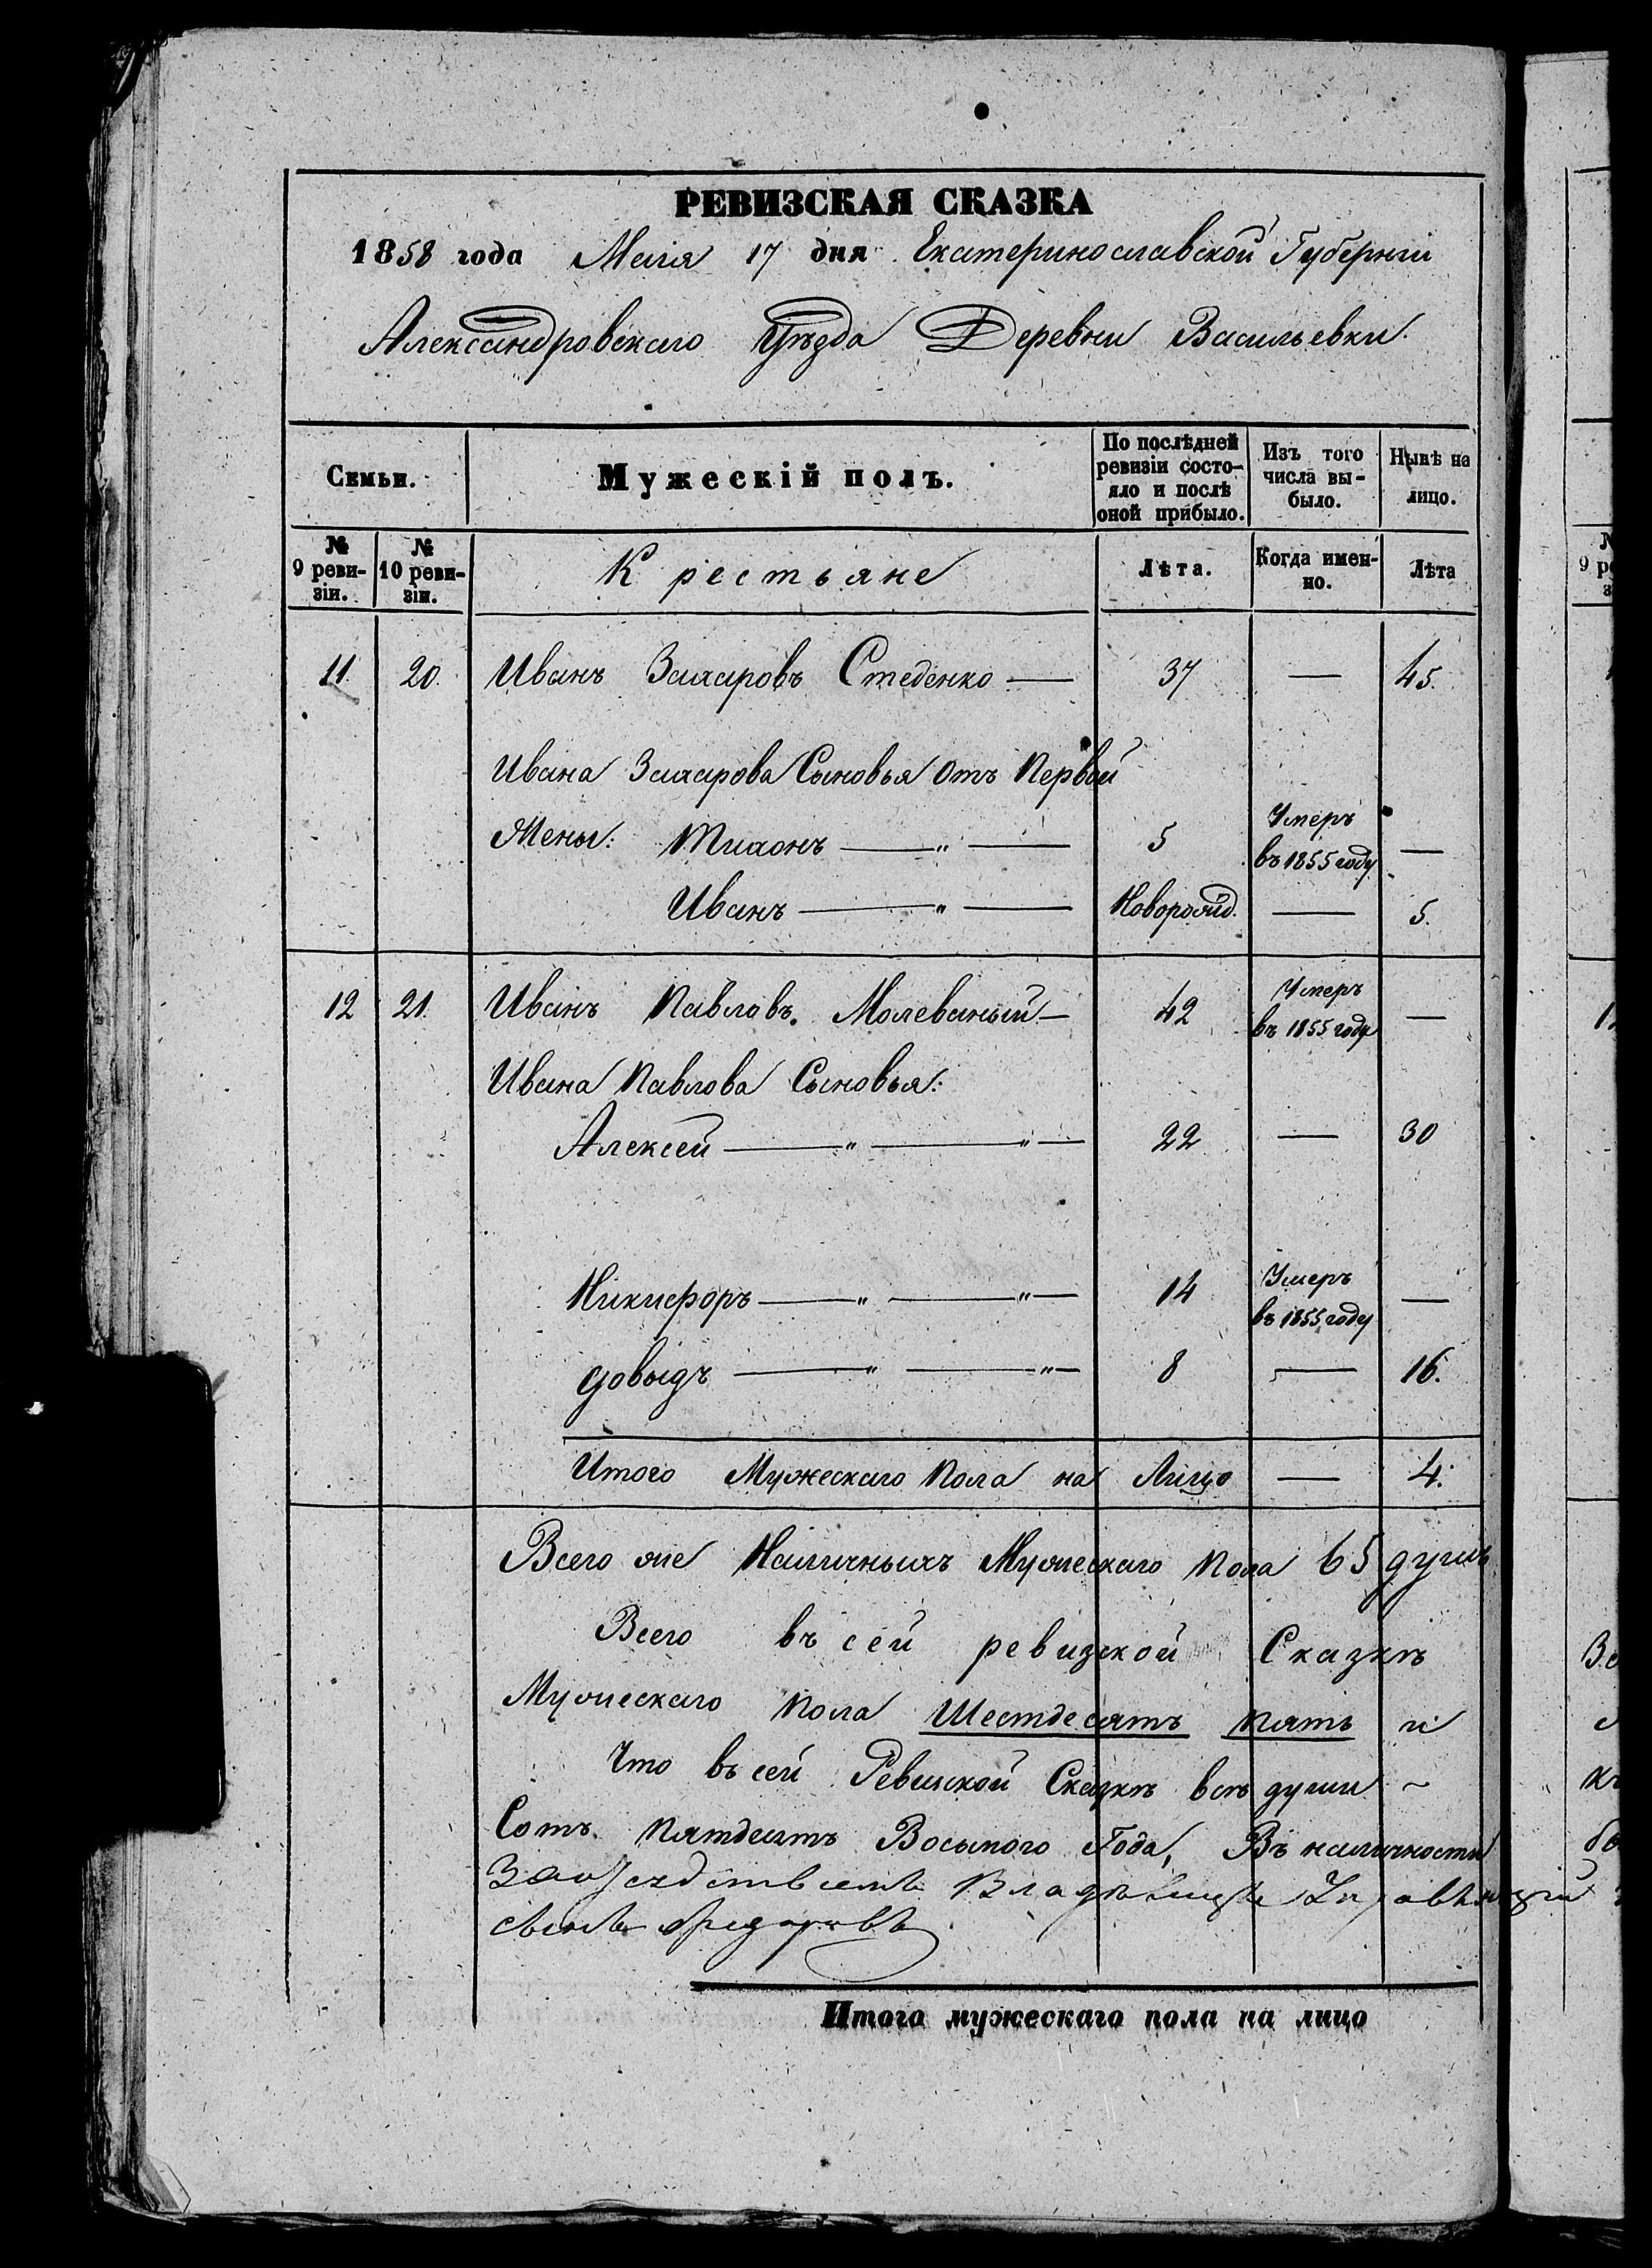 РЕВИЗСКАЯ СКАЗКА
1858 года Маія 17 дня Екатеринославской Губерніи
Александровскаго Уѣзда Деревни Васильевки.
Семьи.
Мужескій полъ.
По послѣдней ревизіи состояло и послѣ оной прибыло.
Изъ того числа выбыло.
Нынѣ на лицо.
№ 9 ревизіи.
№ 10 ревизіи.
Крестьяне
Лѣта.
Когда именно.
Лѣта
11. 20. Иванъ Захаровъ Стеденко — 37 — 45.
Ивана Захарова Сыновья отъ Первой
Жены: Тихонъ — „ — 5 Умеръ въ 1855 году —
Иванъ — „ — Новорожд. — 5.
12 21. Иванъ Павловъ. Молеваный — 42 Умеръ въ 1855 году —
Ивана Павлова Сыновья:
Алексей — „ — „ — 22 — 30
Никифоръ — „ — „ — 14 Умеръ въ 1855 году —
Довыдъ — „ — „ — 8 — 16.
Итого Мужескаго Пола на Лицо — 4.
Всего же Наличныхъ Мужескаго Пола 65 душъ
Всего въ сей ревизкой Сказкѣ
Мужескаго Пола Шестдесятъ пять и
Что въ сей Ревизкой Сказкѣ всѣ души ~
Сотъ Пятдесятъ Восьмого Года, Въ наличности
сынъ
Итого мужескаго пола на лицо
9